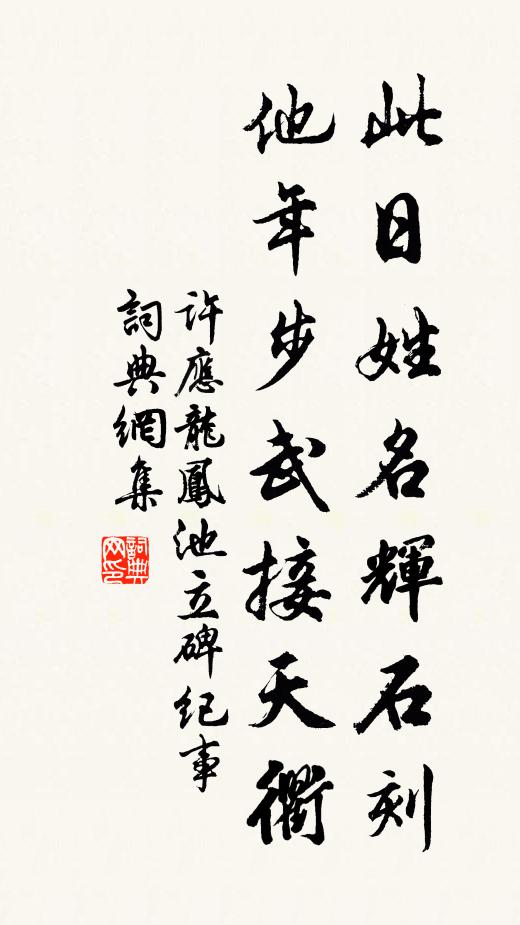 此日姓名輝石刻
他年步武接天衢
許應龍鳳池立碑纪事
詞典網集
詞典网印